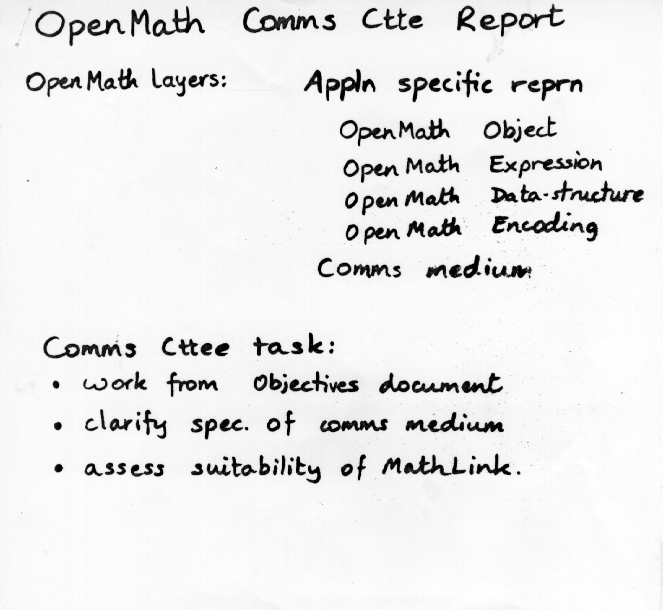 OpenMath Comms Ctte Report
OpenMath Layers: Appln specific reprn
OpenMath Object
OpenMath Expression
OpenMath Data-structure
OpenMath Encoding
Comms medium
Comms Cttee task:
• work from Objectives document
• clarify spec. of comms medium
• assess suitability of MathLink.